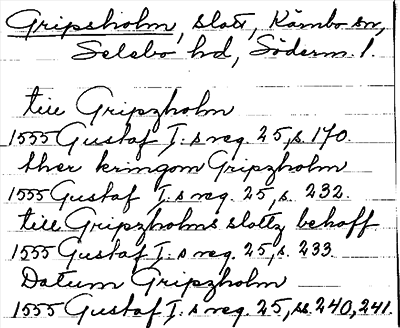 Gripsholm, slott, Kärnbo sn,
Selebo hd, Söderm. l.
till Gripzholm
1555 Gustaf I:s reg. 25, s. 170.
ther kringom Gripzholm
1555 Gustaf I:s reg. 25, s. 232.
till Gripzholms slottz behoff
1555 Gustaf I:s reg. 25, s. 233
Datum Gripzholm
1555 Gustaf I:s reg. 25, ss. 240, 241.